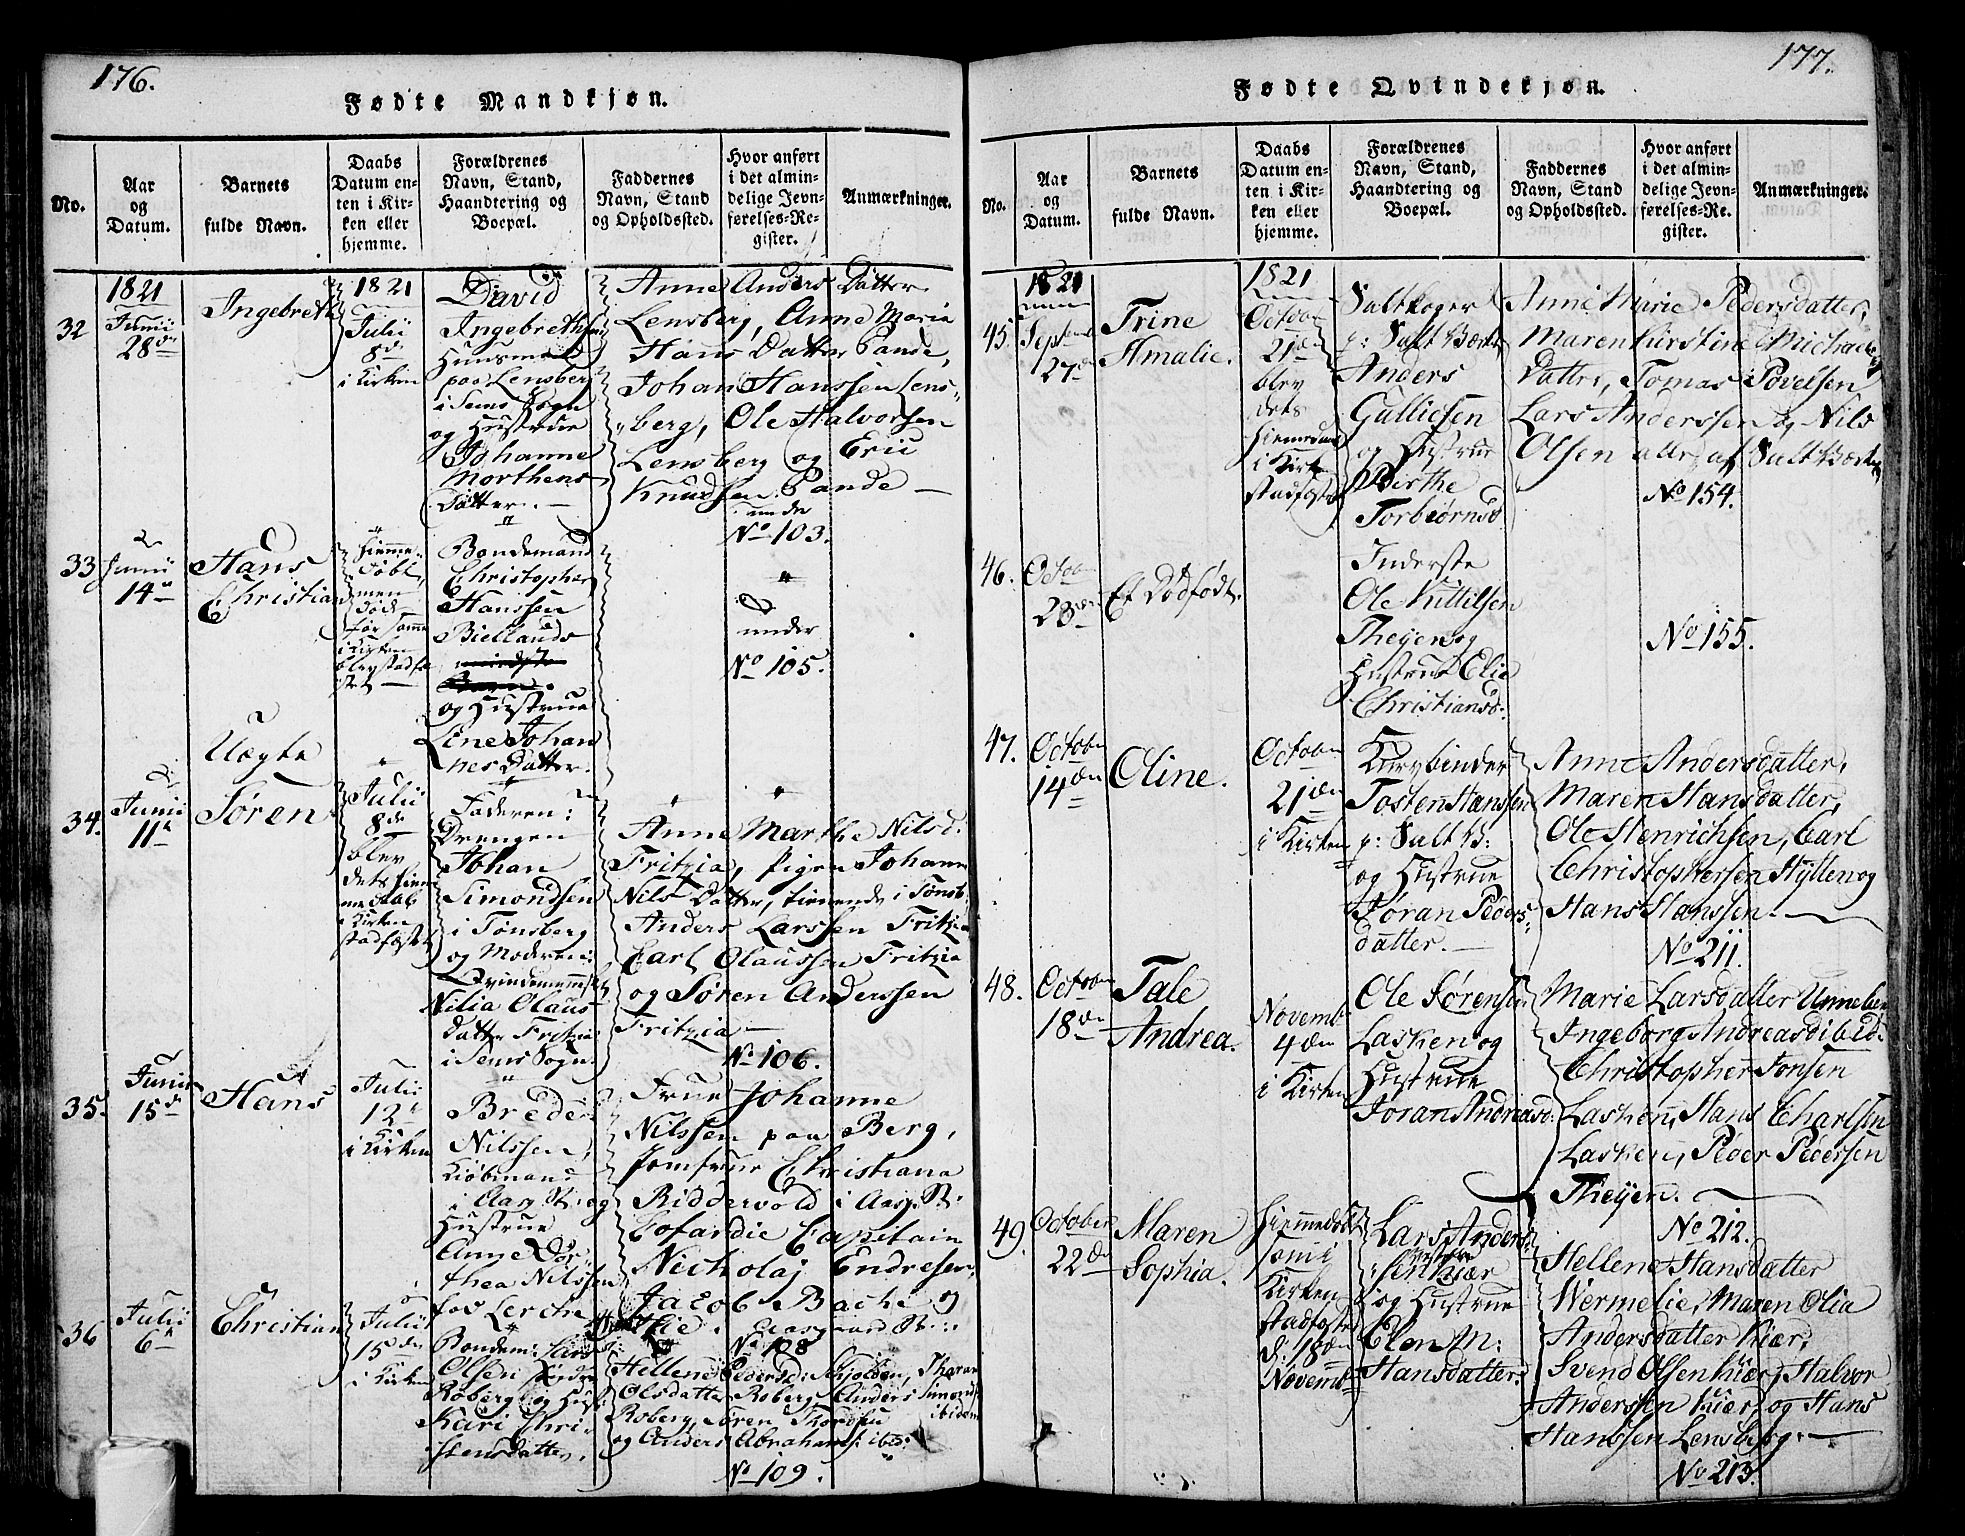 176.
Fødte Mandkjøn.
No.
Aar og Datum.
Barnets fulde Navn.
Daabs Datum enten i Kirken eller hjemme.
Forældrenes Navn, Stand, Haandtering og Boepæl.
Faddernes Navn, Stand og Opholdssted.
Hvor anført i det almindelige Jevnførelses-Register.
Anmærkninger.
32
1821
Junii
28de
Ingebreth
1821
Julii
8de
i Kirken
David
Ingebrethsen
Huusmand
paa Lensberg
i Sems Sogn
og Hustrue
Johanne
Morthens
Datter.
Anne Anders Datter
Lensberg, Anne Maria
Hans Datter Pande,
Johan Hanssen Lens-
berg, Ole Halvorsen
Lensberg og Eric
Knudsen Pande
under
No 103.
33
Junii
14
Hans
Christian
Hiemme-
døbt,
men
død
før samme
i Kirken
blev stadfæ-
stet
Bondemand
Christopher
Hanssen
Biellands
og Hustrue
Line Johan
nes Datter.
under
No 105.
34.
Junii
11
Uægte
Søren
Julii
8de
blev
dets Hiem-
me Daab
i Kirken
stadfæstet
Faderen:
Drengen
Johan
Simondsen
i Tønsberg
og Moderen:
Qvindemennesket
Nilia Olaus
Datter Fritzia
i Sems Sogn.
Anne Marthe Nilsd:
Fritzia, Pigen Johanne
Nils Datter, tienende i Tønsb:
Anders Larssen Fritzia
Carl Olaussen Fritzia
og Søren Anderssen
Fritzia
No 106.
35.
Junii
15de
Hans
Julii
12
i Kirken
Brede
Nilssen,
Kiøbmand
i Aasg. St: og
Hustrue
Anne Dor-
thea Nilssen
fød Lerche
Frue Johanne
Nilssen paa Berg,
Jomfrue Christiana
Riddervold i Aasg. St:
Cofardie Capitain
Nicholaj Endresen,
Jacob Bache og
Aasgaard St:
No 108
36
Julii
6
Christian
Julii
15de
i Kirken
Bondem: Lars
Olsen Søndre
Roberg og Hust:
Kari Chri-
stensdatter.
Hellene Eldersd: Skjolden, Tharan
Olsdatter Roberg, Anders Simonds:
Roberg, Søren ibidem
og Anders Abrahams: ibid:
No 109.
177.
Fødte Qvindekjøn.
No.
Aar og Datum.
Barnets fulde Navn.
Daabs Datum enten i Kirken eller hjemme.
Forældrenes Navn, Stand, Haandtering og Boepæl.
Faddernes Navn, Stand og Opholdssted.
Hvor anført i det almindelige Jevnførelses-Register.
Anmærkninger.
45.
1821
Septem
27de
Trine
Amalie.
1821
Octobr
21de
blev
dets
Hiemedaab
i Kirken
stadfæstet
Saltkoger
p: Salt Værket
Anders
Gulliksen
og Hustrue
Birthe
Torbiørnsd
Anne Marie Pedersdatter,
Maren Kirstine Michaels
Datter, Tomas Povelsen
Lars Anderssen og Nils
Olsen alle af Salt Værket
No 154.
46.
Octobr
28de
Et Dødfødt.
Inderste
Ole Kittilsen
Theyen og
Hustrue Elie
Christiansd:
No 155.
47.
Octobr
14den
Oline.
Octobr
21den
i Kirken
Kurvbinder
Tosten Hanssen
p: Salt V:
og Hustrue
Jøran Peders-
datter.
Anne Andersdatter,
Maren Hansdatter,
Ole Henrichsen, Carl
Christophersen Hytten og
Hans Hanssen.
No 211.
48.
Octobr
18de
Tale
Andrea.
Novemb
4den
i Kirken
Ole Sørensen
Lasken og
Hustrue
Joran Andreasd:
Marie Larsdatter Unneberg
Ingeborg Andreasd: ibid:
Christopher Jonsen
Lasken, Hans Charlsen
Lasken, Peder Pedersen
Theyen.
No 212.
49.
October
22de
Maren
Sophia.
Hiemmedøbt
Kirken
stadfæstet
d: 18den
Novemb
Lars Anders-
sen Kiær
og Hustrue
Elen M:
Hansdatter.
Hellene Hansdatter
Wermelie, Maren Olia
Andersdatter Kiær,
Svend Olsen Kiær, Halvor
Anderssen Kiær og Hans
Hanssen Lensberg.
No 213.